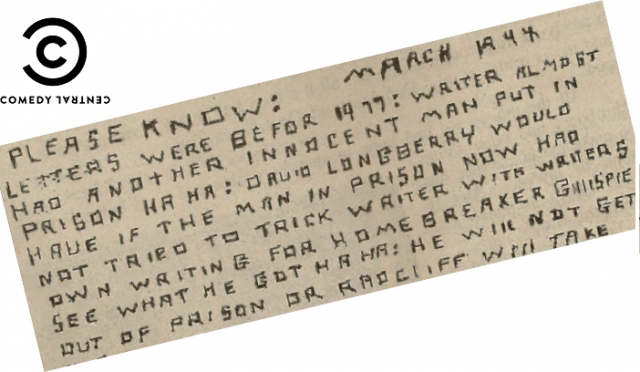 COMEDY CENTRAL
PLEASE KNOW: MARCH
LETTERS WERE BEFOR 1977: WRITER ALMOST
HAD ANOTHER INNOCENT MAN PUT IN
PRISON HA HA: DAVID LONGBERRY WOULD
HAVE IF THE MAN IN PRISON NOW HAD
NOT TRIED TO TRICK WRITER WITH WRITERS
OWN WRITING FOR HOMEBREAKER GILLISPIE
SEE WHAT HE GOT HA HA: HE WILL NOT GET
OUT OF PRISON OR RADCLIFF WILL TAKE